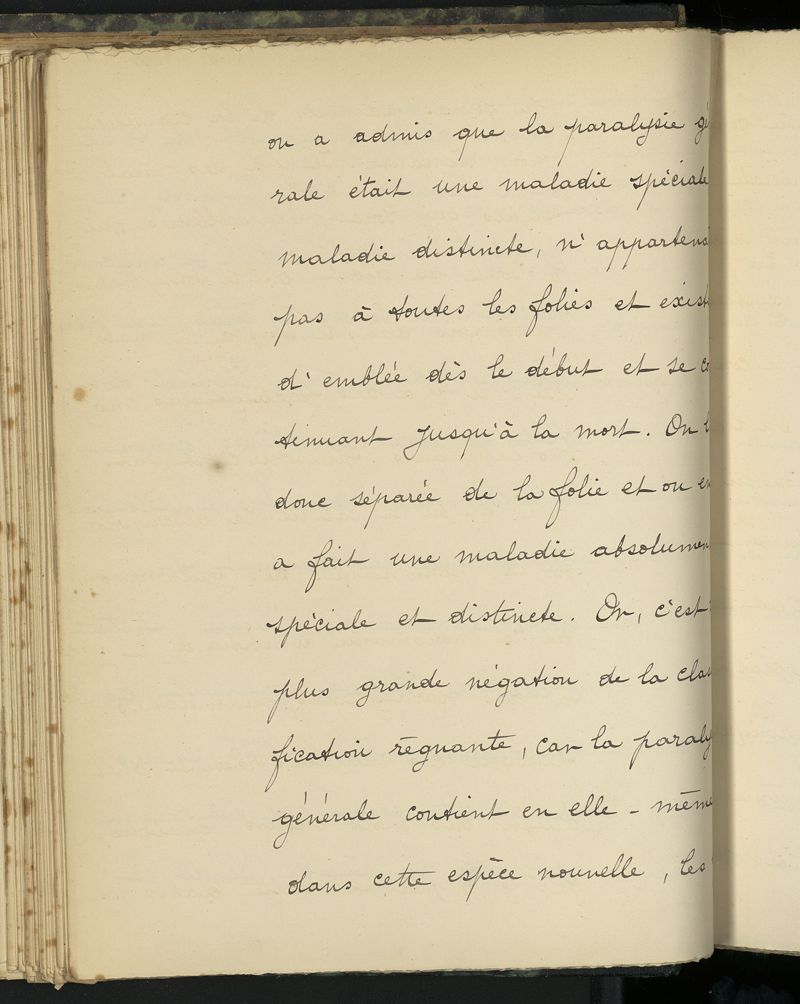 on a admis que la paralysie gé
rale était une maladie spéciale
maladie distincte, n'appartena
pas à toutes les folies et exist
d'emblée dès le début et se co
tinuant jusqu'à la mort. On l
donc séparée de la folie et on en
a fait une maladie absolumen
spéciale et distincte. Or, c'est
plus grande négation de la clas
fication régnante, car la paraly
générale contient en elle-même
dans cette espèce nouvelle, les